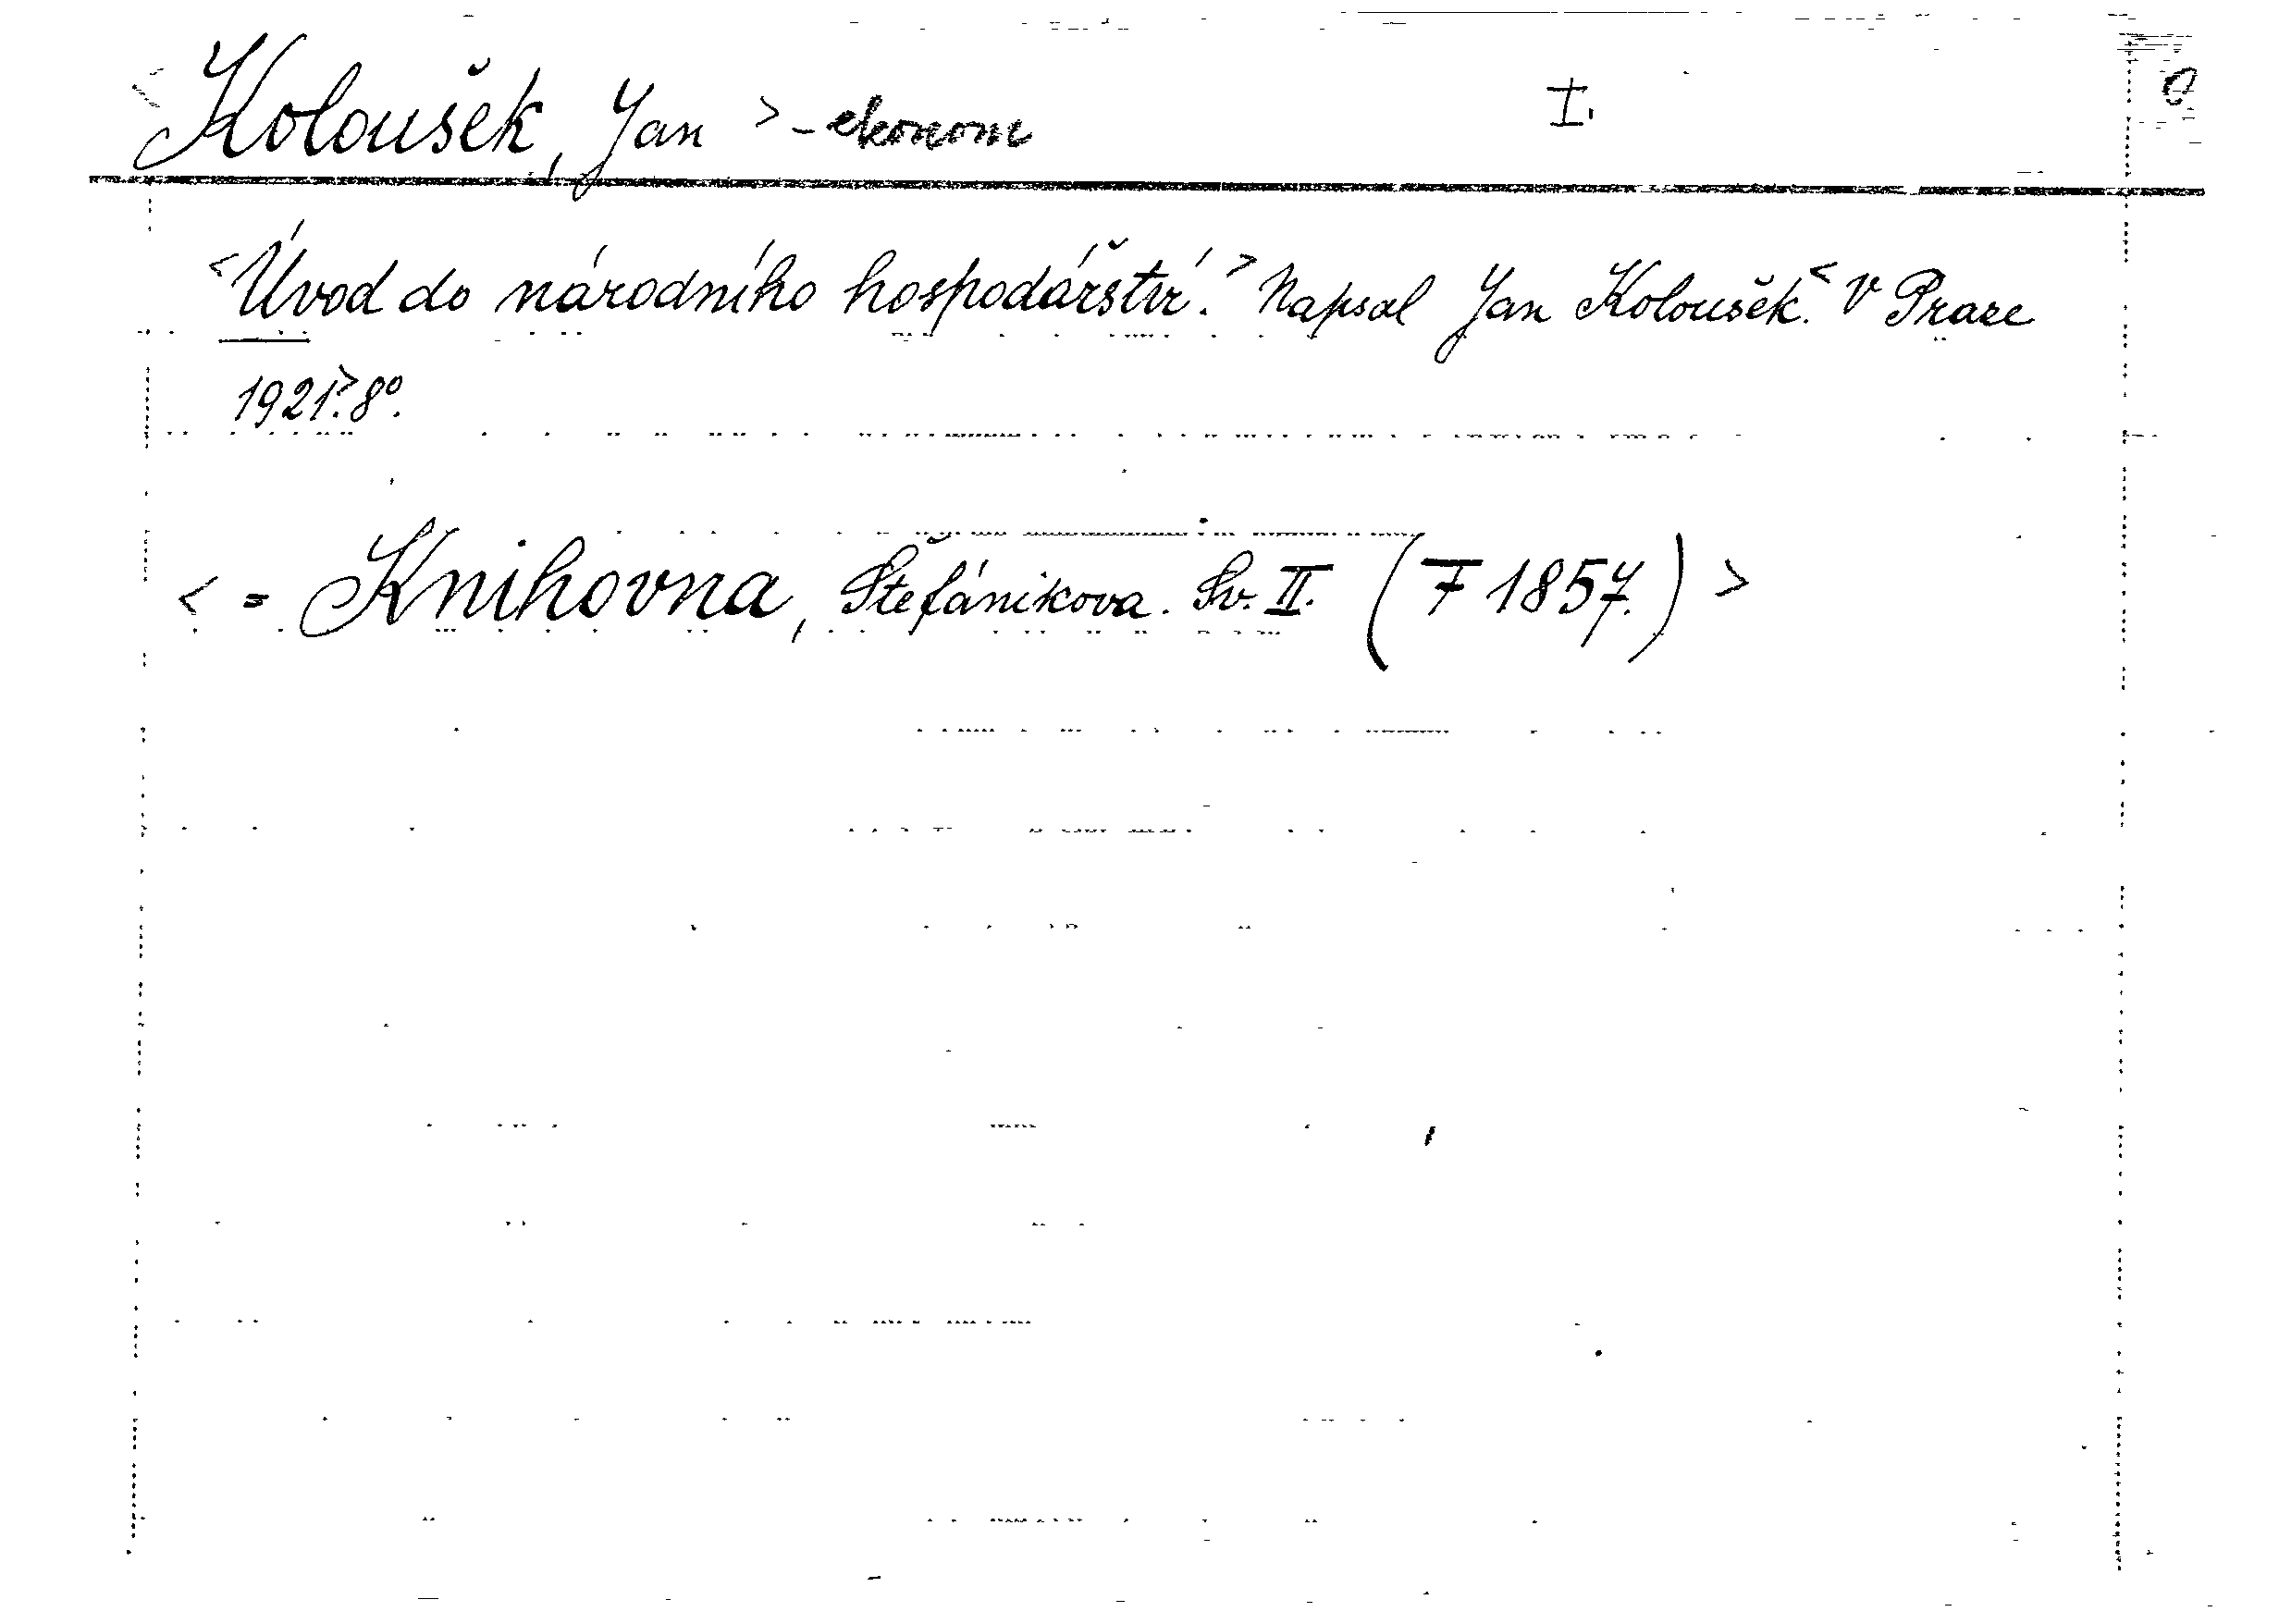 <Koloušek, Jan> - ekonom I.
<Úvod do národního hospodářství.> Napsal Jan Koloušek.< V Praze
1921>. 8º.
< = Knihovna, Štefánikova. Sv. II. (F 1857.) >